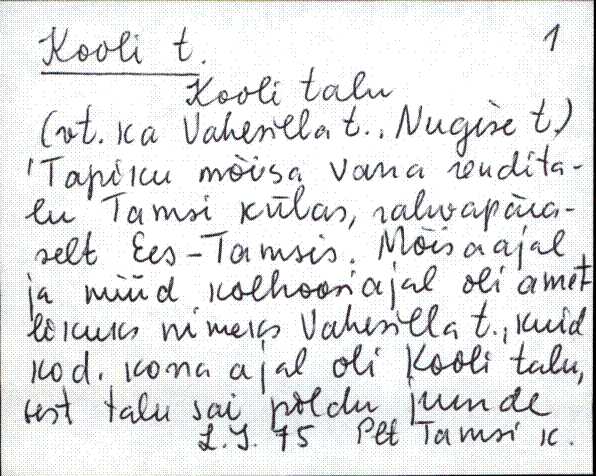 Kooli t. 1
Kooli talu
(vt. ka Vahesilla t., Nugise t.)
'Tapiku mõisa vana rendita-
lu Tamsi külas, rahvapära-
selt Ees-Tamsis. Mõisaajal
ja nüüd kolhoosiajal oli amet
likuks nimeks Vahesilla t., kuid
kod. korra ajal oli Kooli talu,
sest talu sai põldu juurde
L.J. 75 Plt Tamsi k.